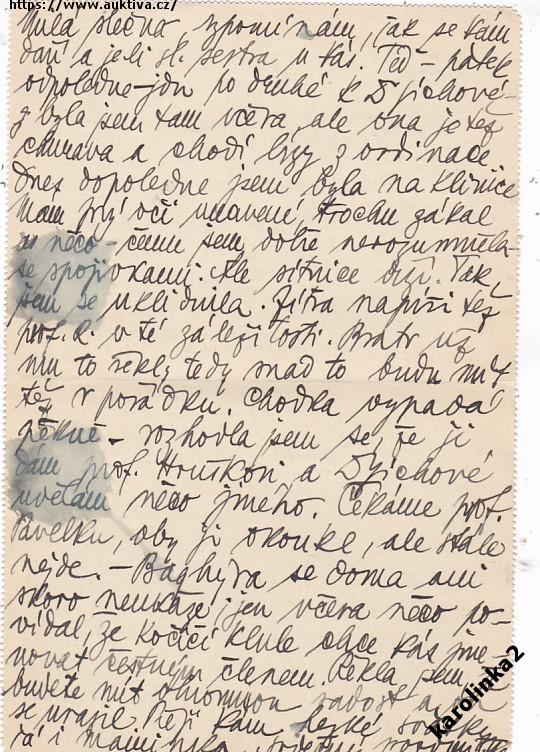 https://www.auktiva.cz/
Milá slečno, vzpomínám, jak se Vám
daří a je-li sl. sestra u Vás. Teď - pátek
odpoledne - jdu po druhé k Dýichové -
byla jsem tam včera, ale ona je též
churava a chodí brzy z ordinace.
Dnes dopoledne jsem byla na klinice
Mám prý oči unavené, trochu zákal
a něco - čemu jsem dobře nerozuměla -
se spojivkami. Ale sítnice drží. Tak
jsem se uklidnila. Zítra napíši též
prof. K. v té záležitosti. Bratr už
mu to řekl, tedy snad to budu mít
též v pořádku. Chodka vypadá
pěkně - rozhodla jsem se, že ji
dám prof. Hruškovi a Dýichové
uvětám něco jiného. Čekáme prof.
Pavelku, aby ji okoukl, ale stále
nejde. - Baghýra se doma ani
skoro neukáže, jen včera něco po-
vídal, že Kočičí klub chce Vás jme-
novat čestným členem. Řekla jsem,
budete mít ohromnou radost a on
se urazil. Přeji Vám hezké
rá i maminka,
karolinka2